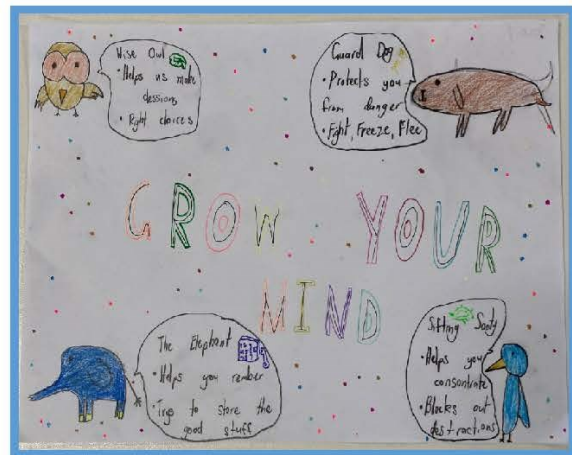 Wise Owl
• Helps us make
dessions
• Right choices
Guard Dog
• Protects you
from danger
• Fight, Freeze, Flee
GROW YOUR
MIND
The Elephant
• Helps you rember
• Trys to store the
good stuff
Sifting Sooty
• Helps you
consontrate
• Blocks out
destractions